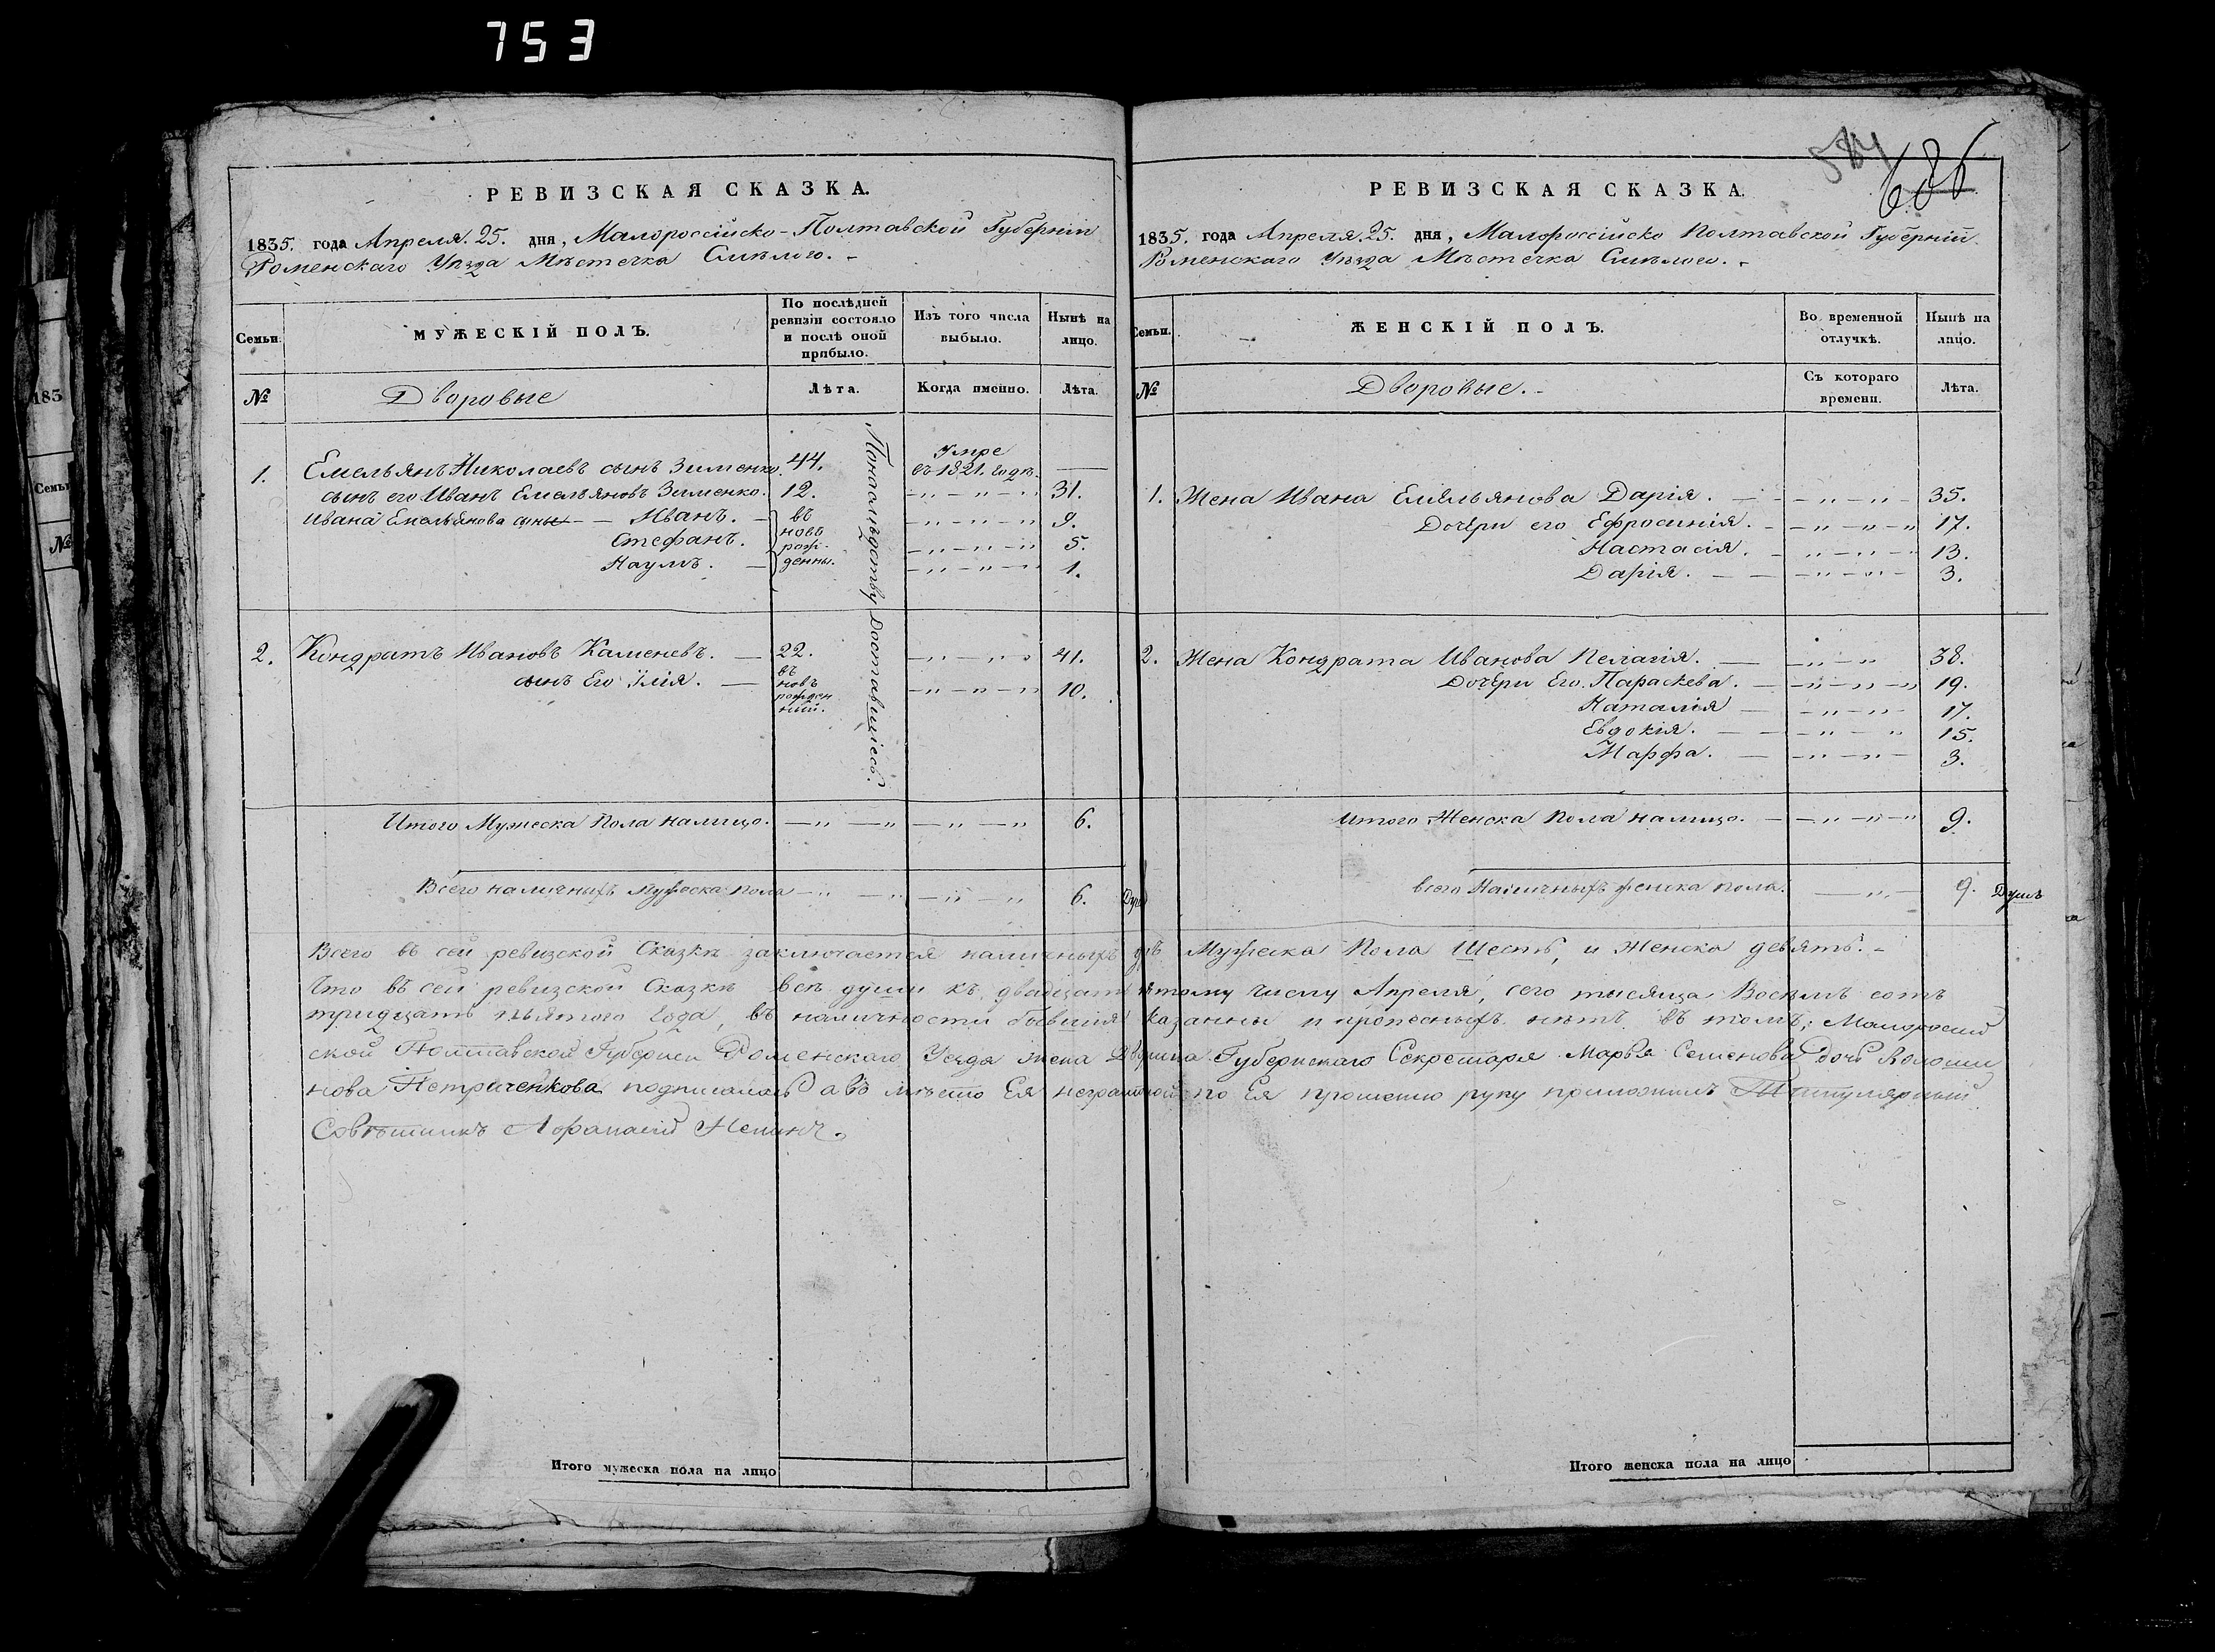 753
584
686
РЕВИЗСКАЯ СКАЗКА.
1835. года Апреля. 25. дня, Малороссійско-Полтавской Губерніи
Роменскаго Уѣзда Мѣстечка Смѣлого. -
Семьи.
МУЖЕСКІЙ ПОЛЪ.
По послѣдней ревизіи состояло и послѣ оной прибыло.
Изъ того числа выбыло.
Нынѣ на лицо.
№
Дворовые
Лѣта.
Когда именно.
Лѣта.
1. Емельянъ Николаевъ сынъ Зименко. 44. Умре въ 1821. годѣ. —
сынъ его Иванъ Емельяновъ Зименко. 12. 31.
Ивана Емельянова сины — Иванъ. — въ 9.
Стефанъ. новѣ рож- 5.
Наумъ. — денны. 1.
2. Кондратъ Ивановъ Каменевъ. — 22. 41.
сынъ Его Илія. — въ новѣ рожден ний. 10.
Доставшіесь.
Итого Мужеска Пола налицо. 6.
Всего наличныхъ мужеска пола 6. Душъ
РЕВИЗСКАЯ СКАЗКА.
1835. года Апреля. 25. дня, Малороссійско Полтавской Губерній.
Роменскаго Уѣзда Мѣстечка Смѣлого. -
Семьи.
ЖЕНСКІЙ ПОЛЪ.
Во временной отлучкѣ.
Нынѣ на лицо.
№
Дворовые. -
Съ котораго времени.
Лѣта.
1. Жена Ивана Емельянова Дарія. — 35.
Дочери его Ефросинія. 17.
Настасія. 13.
Дарія. — 3.
2. Жена Кондрата Иванова Пелагія. — 38.
Дочери Его. Параскева. 19.
Наталія — 17.
Евдокія. — 15.
Марфа. — 3.
Итого Женска Пола налицо. — 9.
всего Наличныхъ женска пола. 9. Душъ
Всего въ сей ревизской Сказкѣ заключается наличныхъ Мужеска Пола Шесть, и Женска девять. -
Что въ сей ревизской Сказкѣ всѣ души къ двадцать пятому числу Апреля, сего тысяща Восемь сотъ
тридцать пьятого Года, въ наличности бывшія казанны и прописныхъ нѣтъ въ томъ; Малоросій
ской Полтавской Губерніи Роменскаго Уезда жена Губернскаго Секретаря Марья Семенова дочь
нова Петриченкова подписалась а въ мѣсто Ея неграмотной по Ея прошенію руку приложилъ Титулярный
Совѣтникъ Афанасій
Итого мужеска пола на лицо
Итого женска пола на лицо
183
Семьи
№